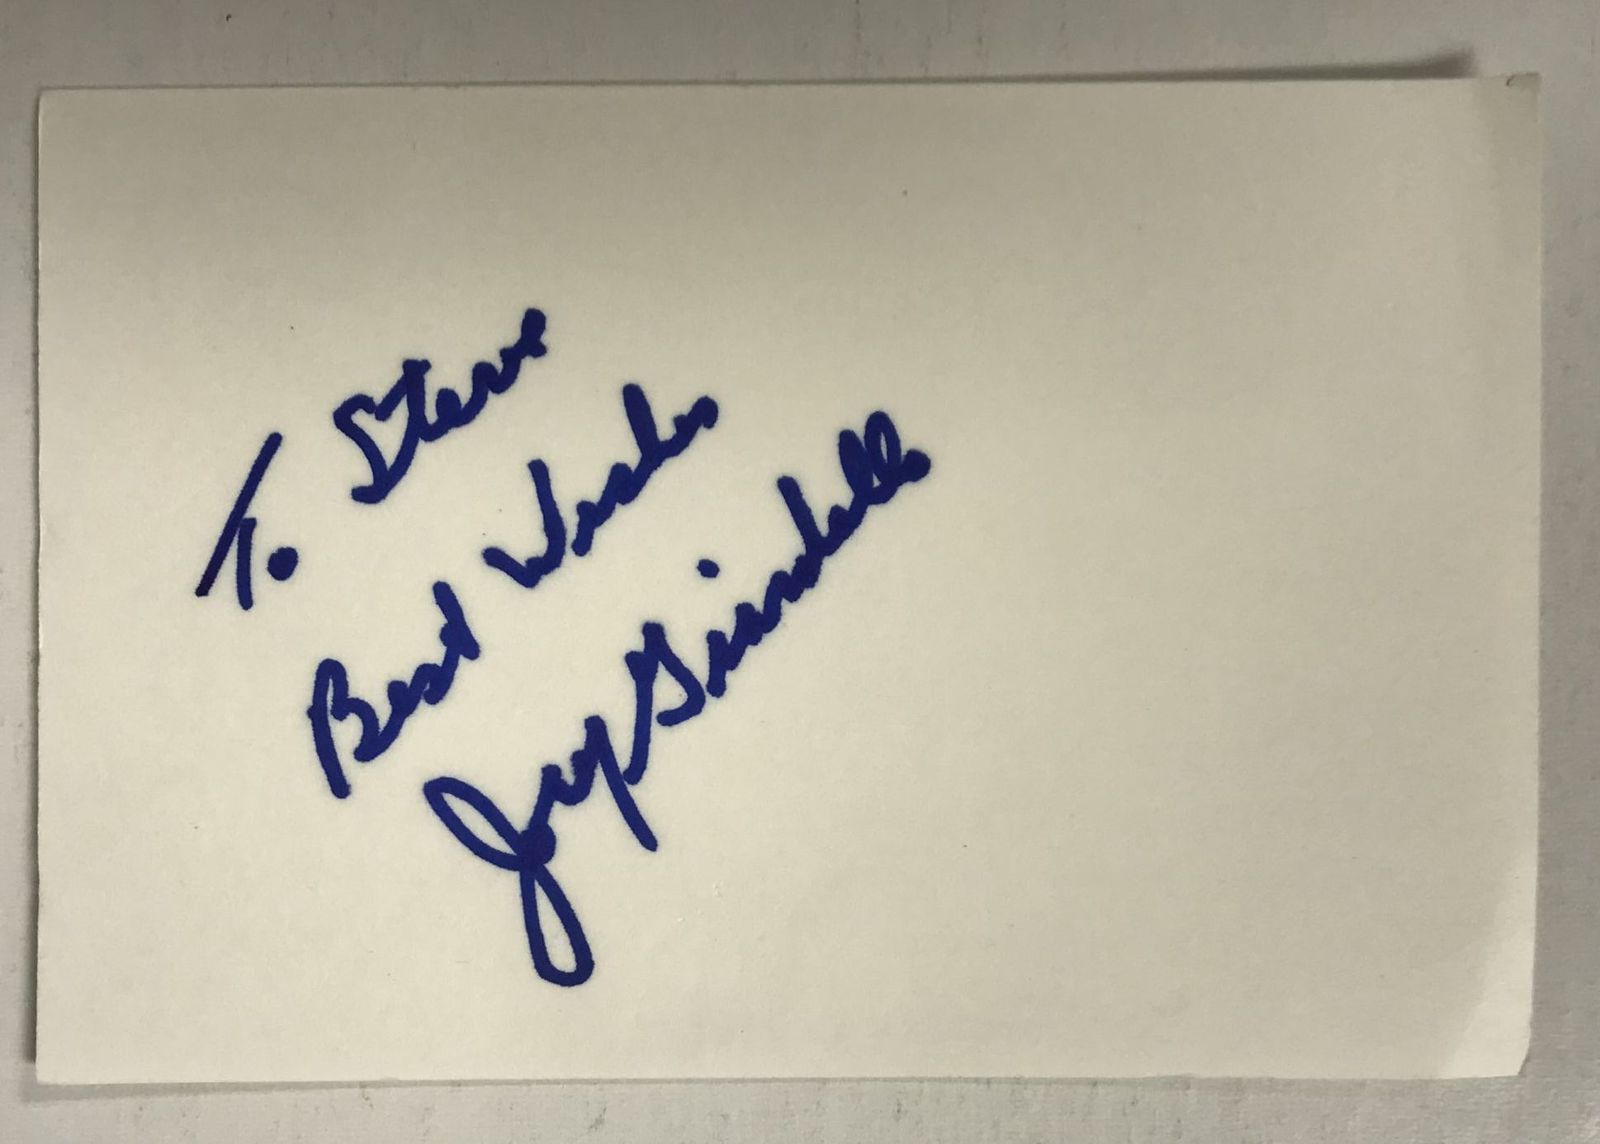 To Steve
Best Wishes
Joey Giardello